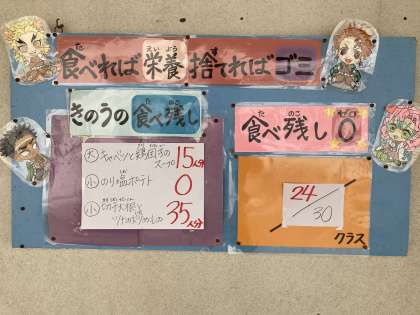 食べれば栄養捨てればゴミ
きのうの食べ残し
㊅キャベツと鶏団子のスープ 15人分
㊙のり塩ポテト 0
㊙切干大根とツナのさっぱりあえ 35人分
食べ残し0
24/30
クラス